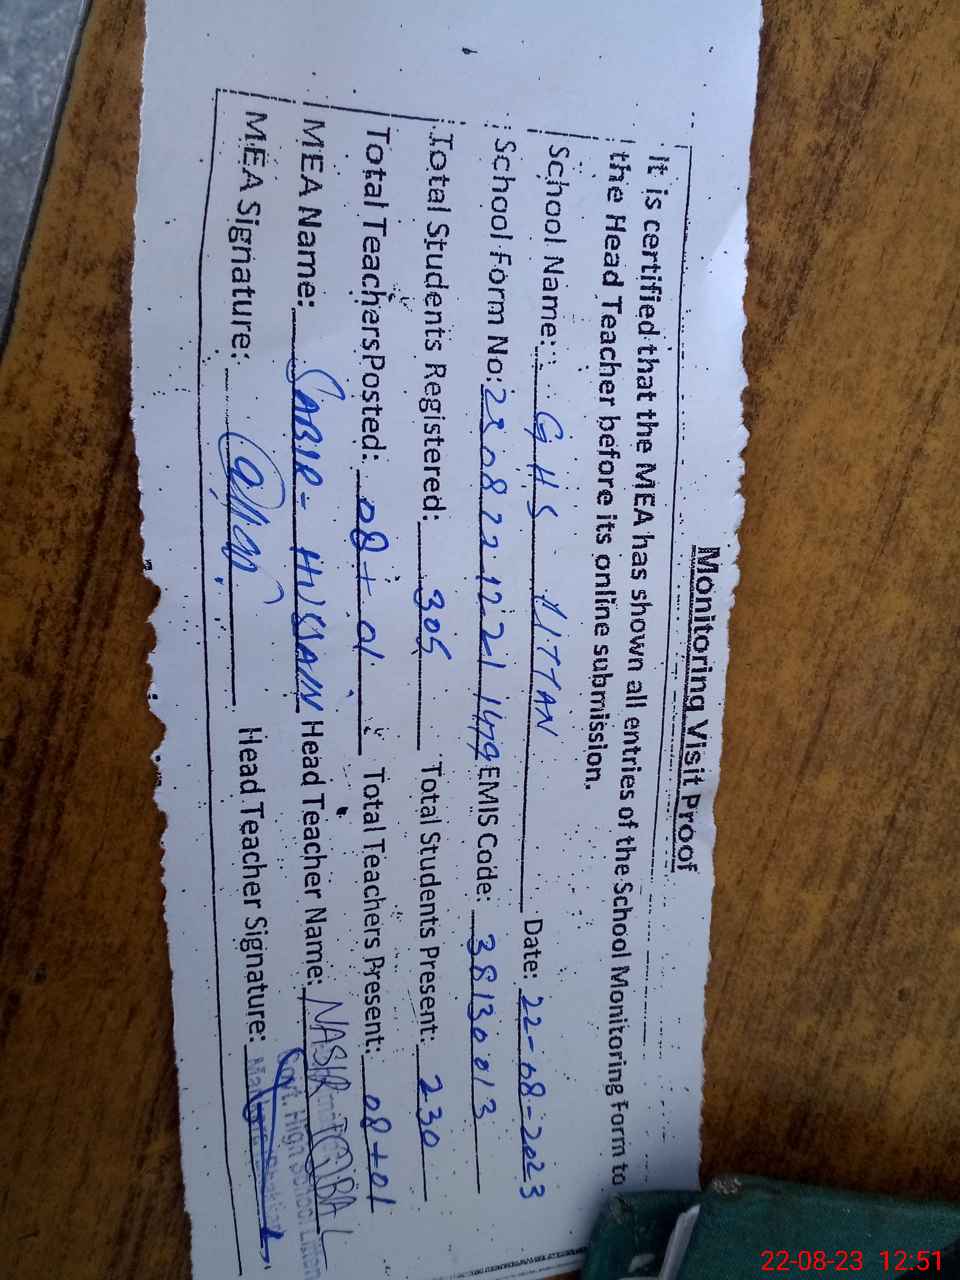 Monitoring Visit Proof
It is certified that the MEA has shown all entries of the School Monitoring Form to
the Head Teacher before its online submission.
School Name: GHS LITTAN Date: 22-08-2023
School Form No: 23082212211479 EMIS Code: 38130013
Total Students Registered: 305 Total Students Present: 230
Total Teachers Posted: 08+01 Total Teachers Present: 08+01
MEA Name: SABIR-HUSSAIN Head Teacher Name: NASIR IQBAL
MEA Signature: Head Teacher Signature:
Govt. High School
22-08-23 12:51